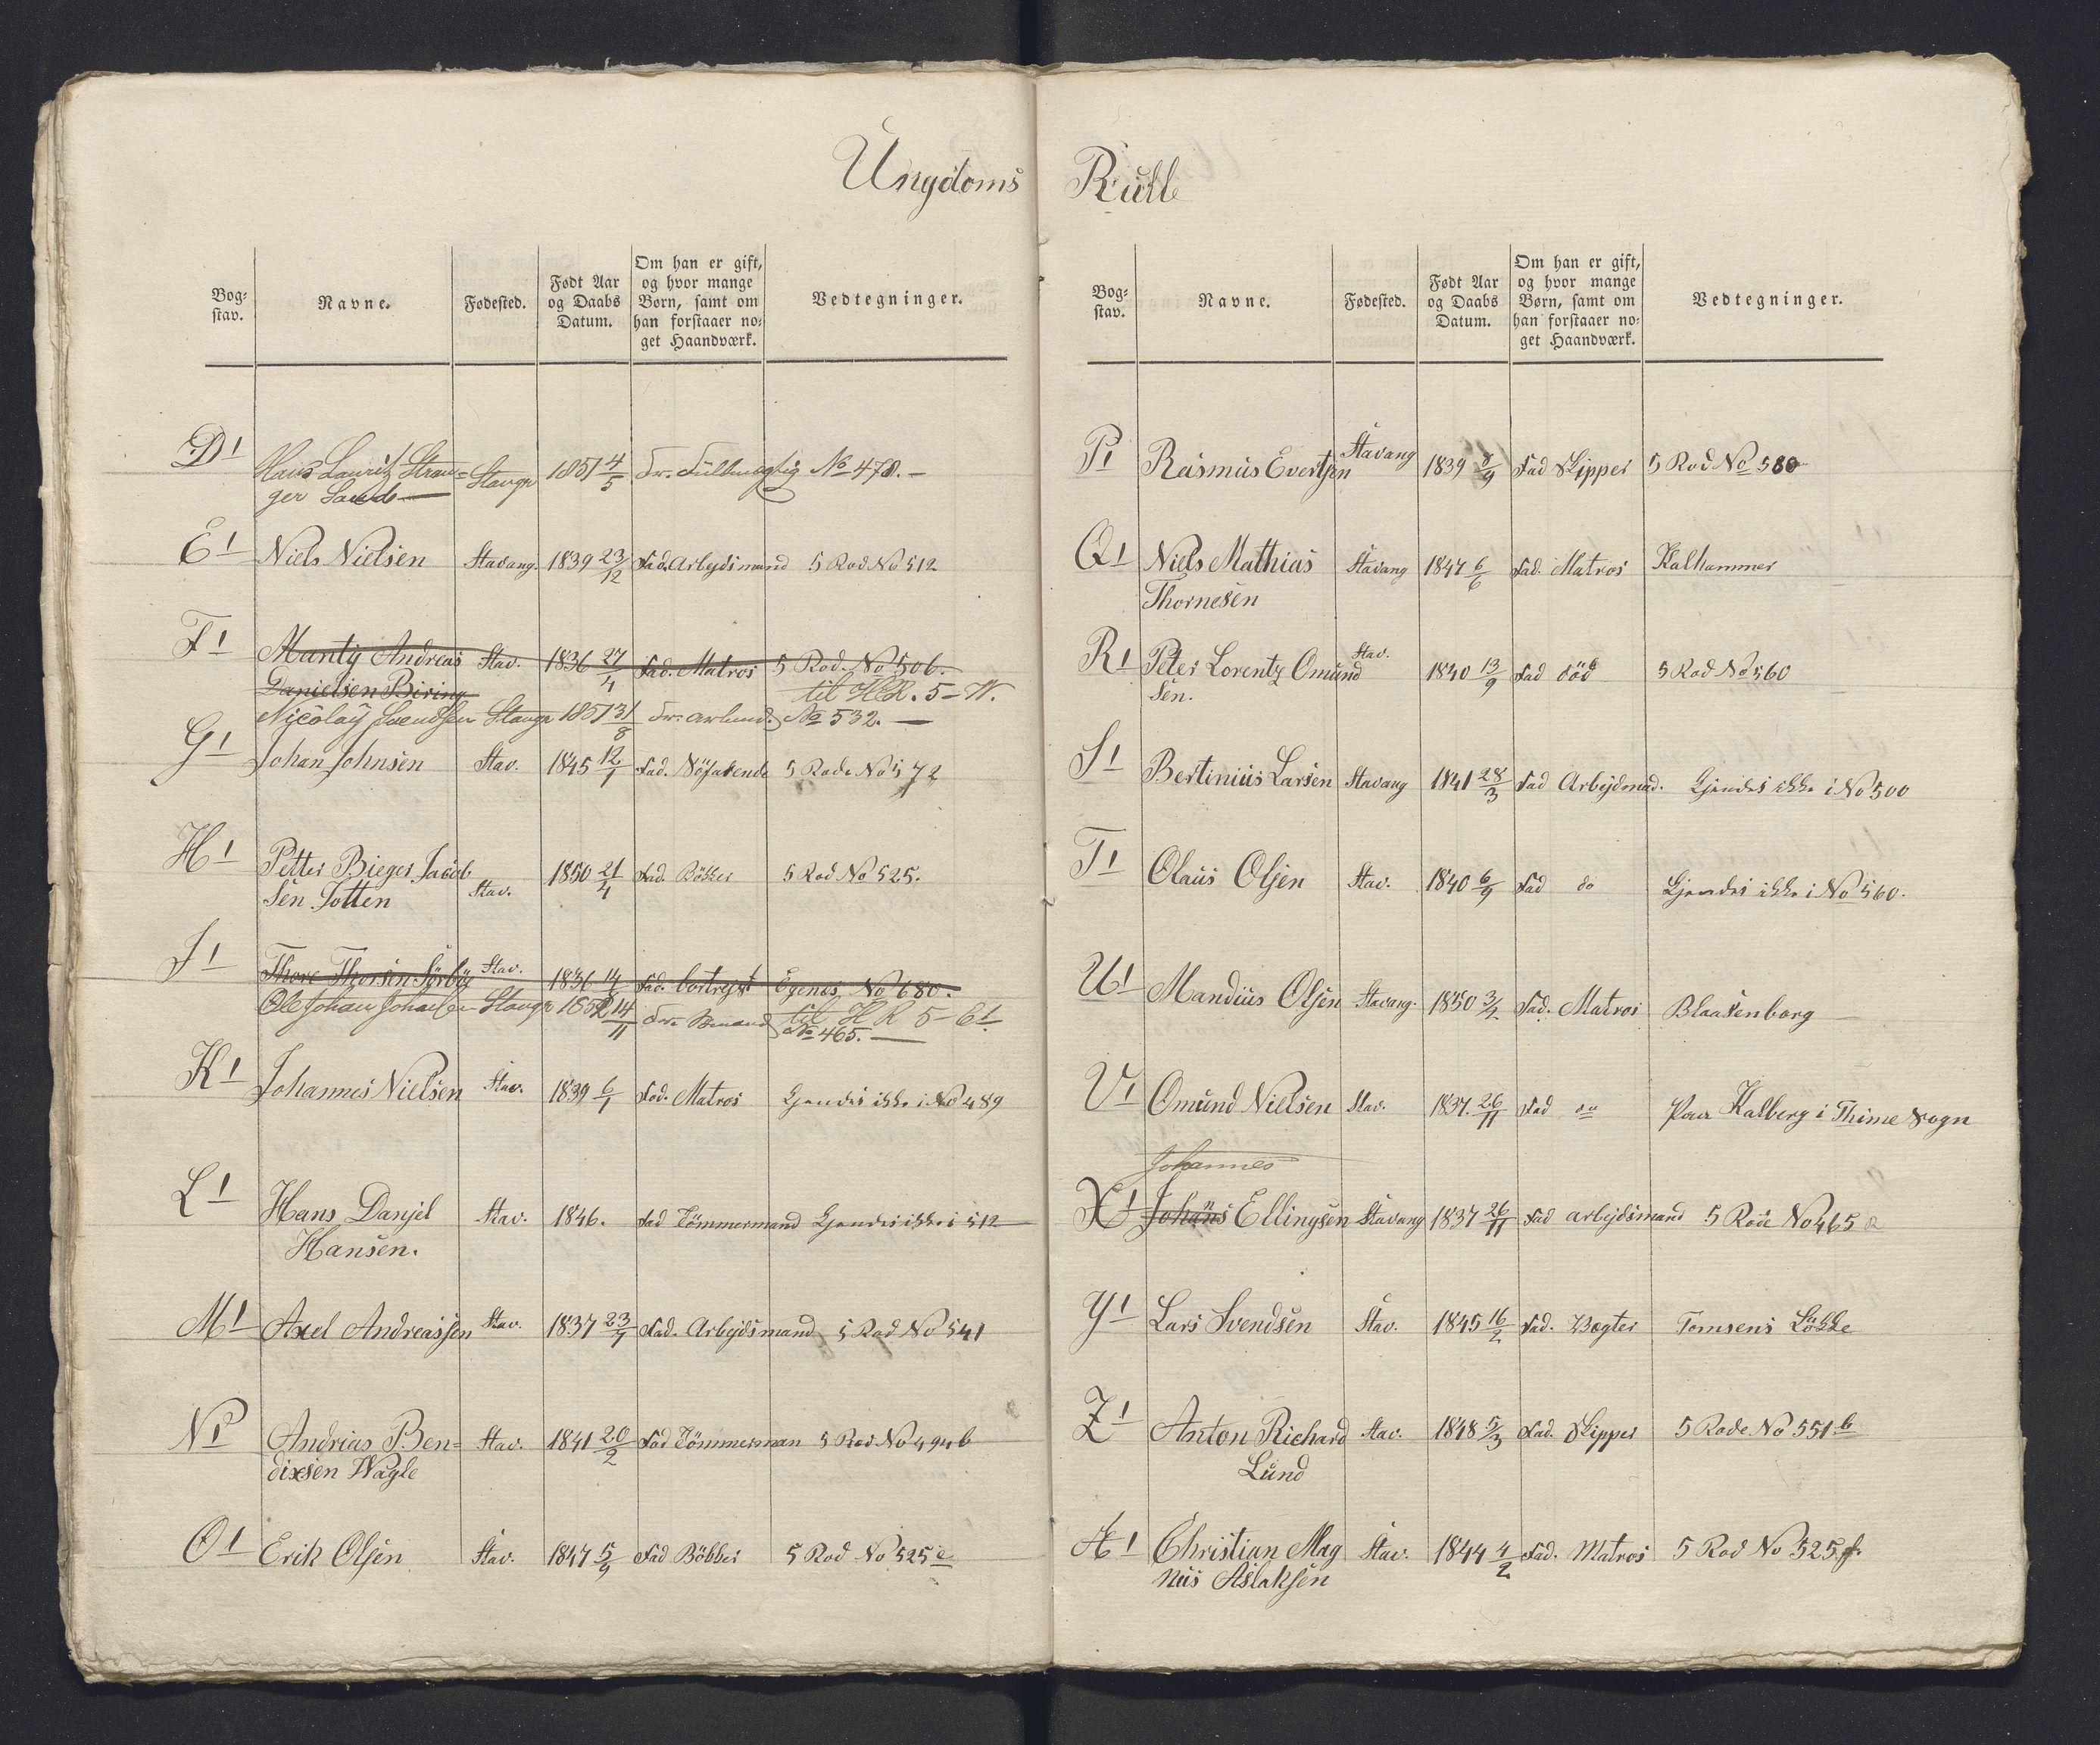 Ungdoms Rulle
Bogstav. Navne. Fødested. Født Aar og Daabs Datum. Om han er gift, og hvor mange Børn, samt om han forstaaer noget Haandværk. Vedtegninger.
D1 Hans Lauritz Stran= Stavgr 1851 4/5 Fr. Fuldmægtig No 478. —
ger Sande
E1 Niels Nielsen Stavang. 1839 23/12 Fad. Arbejdsmand 5 Rod No 512
F1 Andreas Stav. 1836 27/4 Fad. Matros 5 Rod. No 506.
Danielsen Biring til H.R. 5 – W.
Nicolay Svendsen Stavgr 1851 31/8 Fr. arbmd. No 532. —
G1 Johan Johnsen Stav. 1845 12/1 Fad. Søfarende 5 Rode No 572
H1 Petter Bieger Jacob 1850 21/4 Fad. Bökker 5 Rod No 525.
sen Totten Stav.
J1 Thore Thorsen Sörböe Stav. 1836 Fad. bortrejst Egenes No 680.
Ole Johan Johnsen Stavgr 1852 14/11 til H R 5 – E1.
No 465. —
K1 Johannes Nielsen Stav. 1839 6/1 Fad. Matros Gjendes ikke i No 489
L1 Hans Danjel Stav. 1846. Fad Tömmermand Gjendes ikke i 512
Hansen.
M1 Axel Andreassen Stav. 1837 23/7 Fad. Arbejdsmand 5 Rod No 541
N1 Andrias Ben= Stav. 1841 20/2 Fad Tömmerman 5 Rod No 494 b
dixsen Wagle
O1 Erik Olsen Stav. 1847 5/9 Fad Bökker 5 Rod No 525 e
Bogstav. Navne. Fødested. Født Aar og Daabs Datum. Om han er gift, og hvor mange Børn, samt om han forstaaer noget Haandværk. Vedtegninger.
P1 Rasmus Evertsen Stavang 1839 8/9 Fad Skipper 5 Rod No 580
Q1 Niels Mathias Stavang 1847 6/6 Fad. Matros Kalhammer
Thornesen
R1 Peter Lorentz Omund Stav. 1840 13/9 Fad död 5 Rod No 560
sen.
S1 Bertinius Larsen Stavang 1841 28/3 Fad Arbejdsmd. Gjendes ikke i No 500
T1 Olaus Olsen Stav. 1840 6/9 Fad do Gjendes ikke i No 560.
U1 Mandius Olsen Stavang. 1850 3/2 Fad. Matros Blaasenborg
V1 Omund Nielsen Stav. 1837. 26/11 Fad do Paa Kalberg i Thime Sogn
Johannes
X1 Johans Ellingsen Stavang 1837 26/11 Fad arbejdsmand 5 Rode No 465 a
Y1 Lars Svendsen Stav. 1845 16/2 Fad. Vægter Tomsens Løkke
Z1 Anton Richard Stav. 1848 5/3 Fad. Skipper 5 Rode No 551 b
Lund
Æ1 Christian Mag Stav. 1844 4/2 Fad. Matros 5 Rod No 525 f.
nus Aslaksen